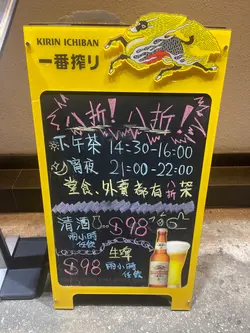 KIRIN ICHIBAN
一番搾り
八折! 八折!
下午茶 14:30-16:00
宵夜 21:00-22:00
堂食、外賣都有八折架
清酒 $98
兩小時
任飲
生啤
$98 兩小時
任飲